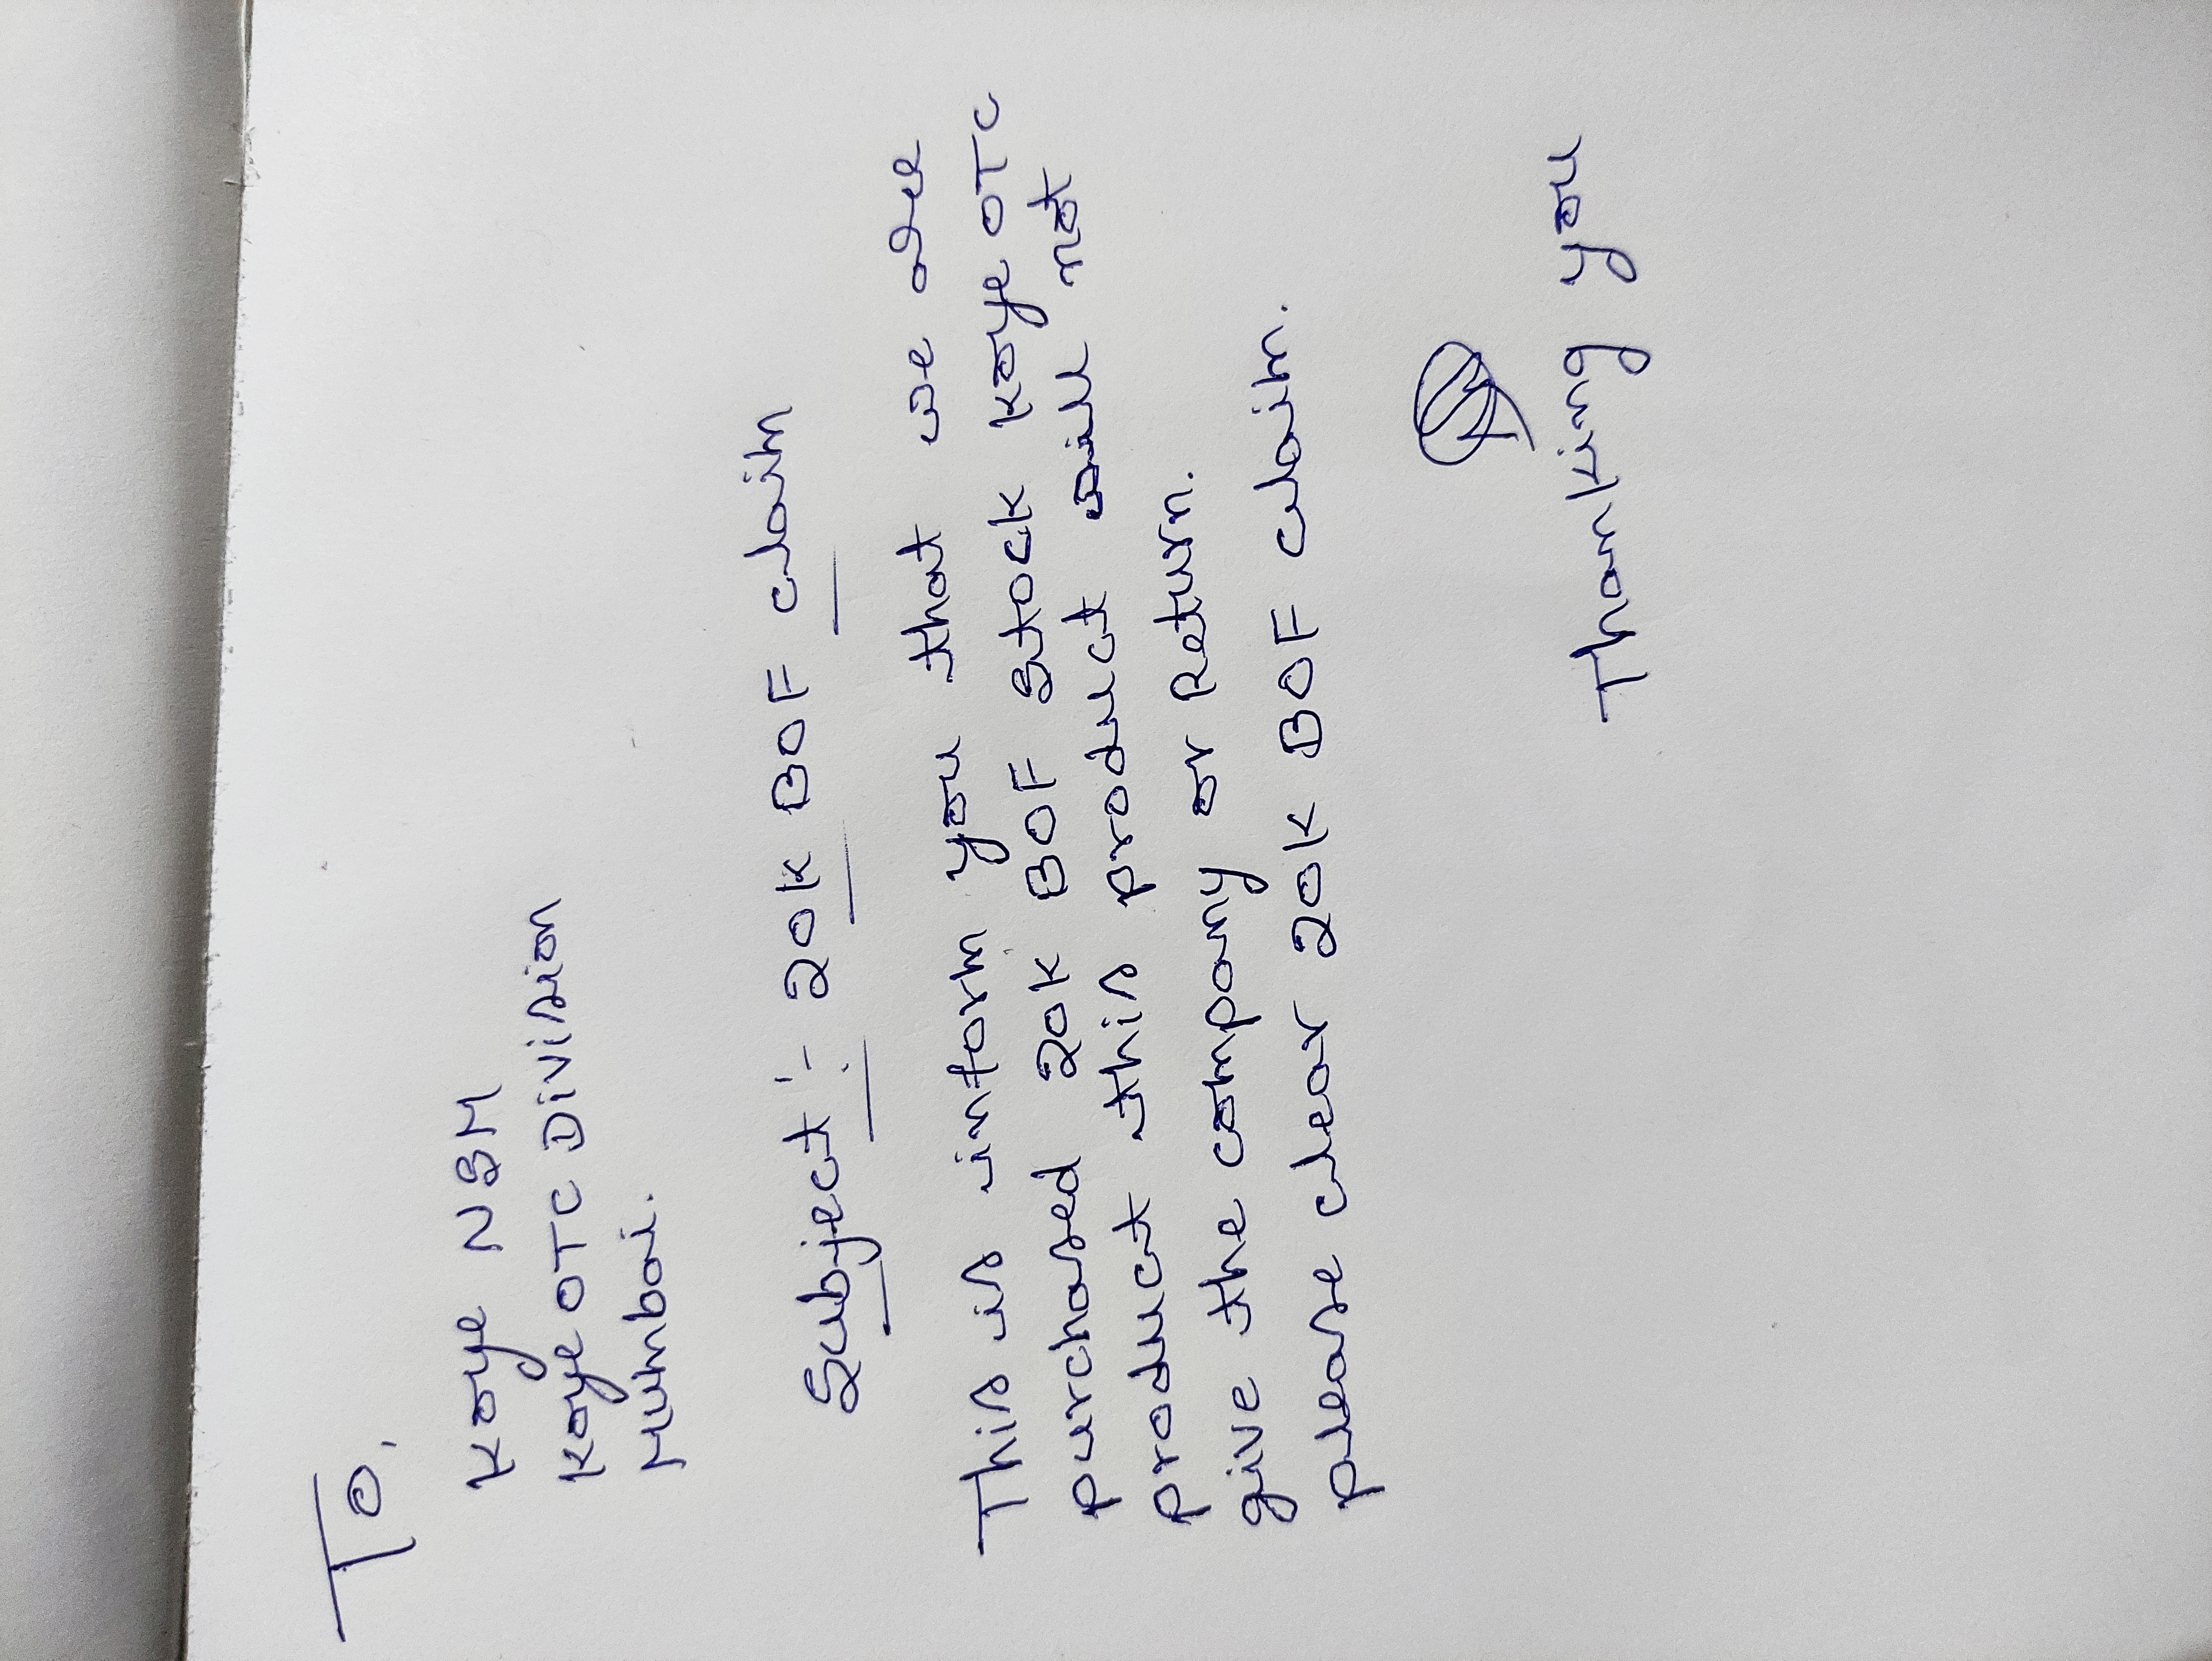 To,
Koye NSM
Koye OTC Division
Mumbai.
Subject :- 20K BOF claim
This is inform you that we are
purchased 20K BOF Stock Koye OTC
product this product will not
give the company or Return.
please clear 20K BOF claim.
Thanking you